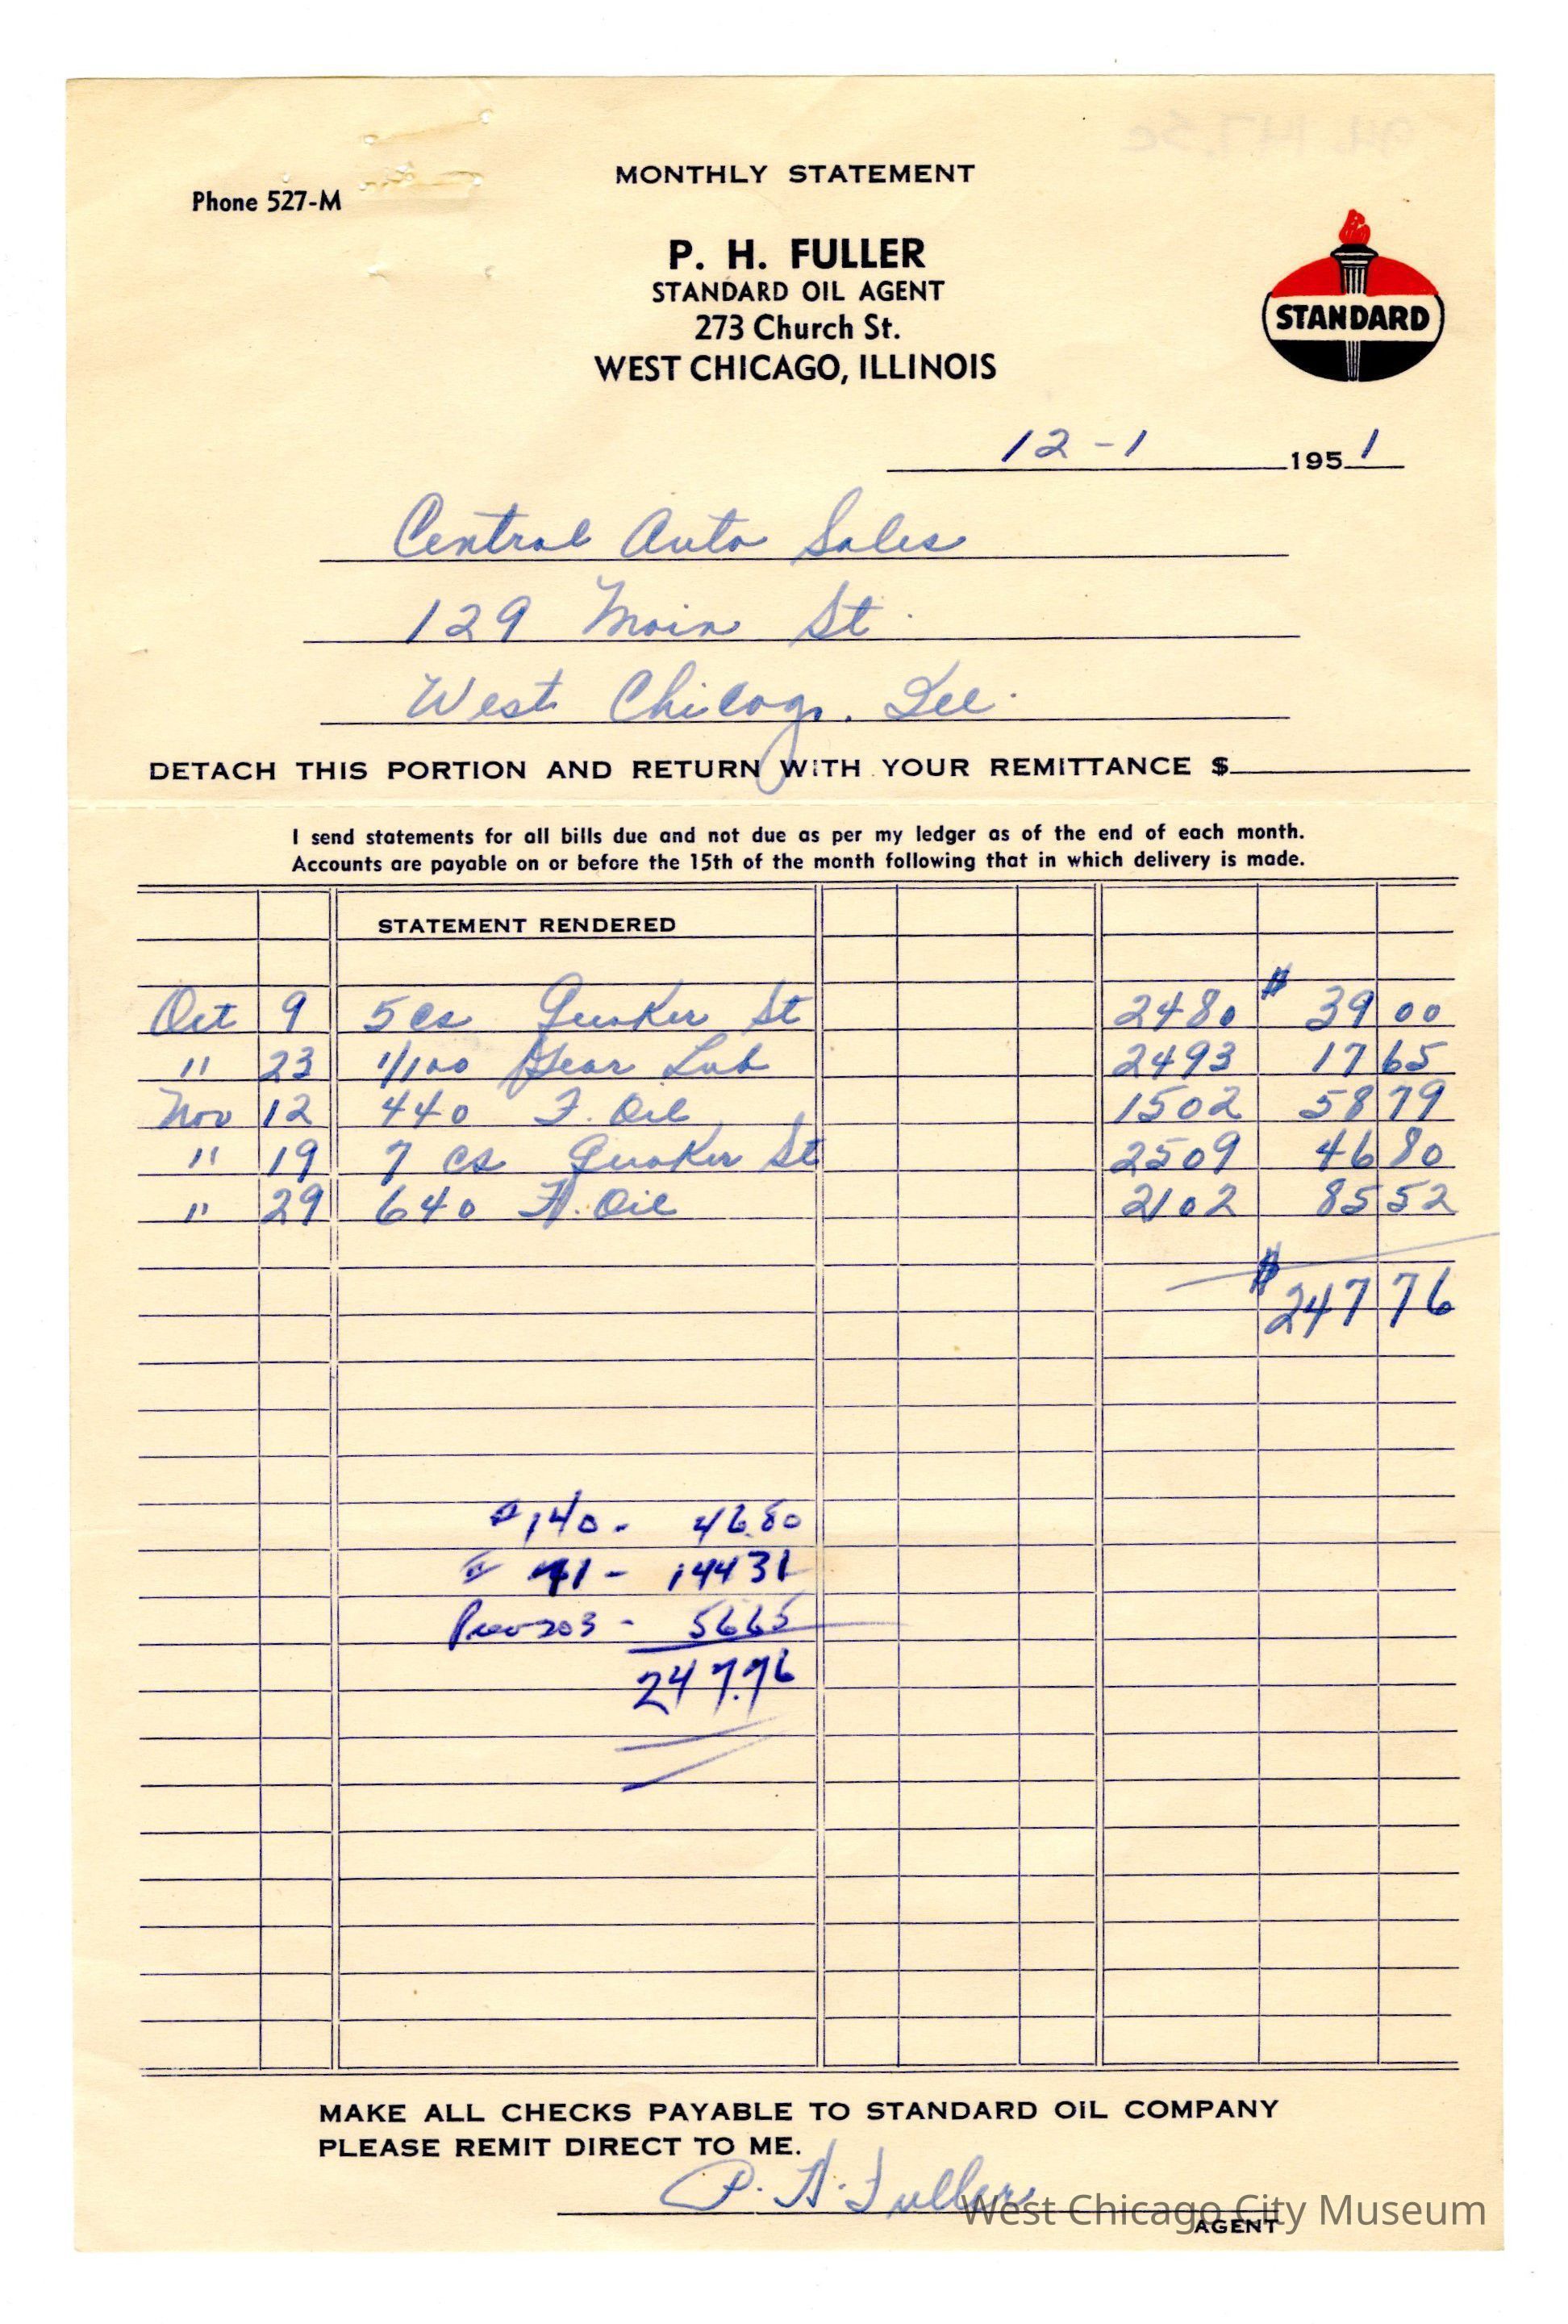 MONTHLY STATEMENT
Phone 527-M
P. H. FULLER
STANDARD OIL AGENT
273 Church St.
WEST CHICAGO, ILLINOIS
STANDARD
12-1 1951
Central Auto Sales
129 Main St.
West Chicago. Ill.
DETACH THIS PORTION AND RETURN WITH YOUR REMITTANCE $
I send statements for all bills due and not due as per my ledger as of the end of each month.
Accounts are payable on or before the 15th of the month following that in which delivery is made.
STATEMENT RENDERED
Oct 9 5 cs Quaker St 2480 $ 39 00
" 23 1/100 Gear Lub 2493 17 65
Nov 12 440 F. Oil 1502 58 79
" 19 7 cs Quaker St 2509 46 80
" 29 640 F. Oil 2102 85 52
$ 247 76
140 - 46.80
41 - 144 31
203 - 56 65
247.76
MAKE ALL CHECKS PAYABLE TO STANDARD OIL COMPANY
PLEASE REMIT DIRECT TO ME.
P. H. Fuller
AGENT
West Chicago City Museum